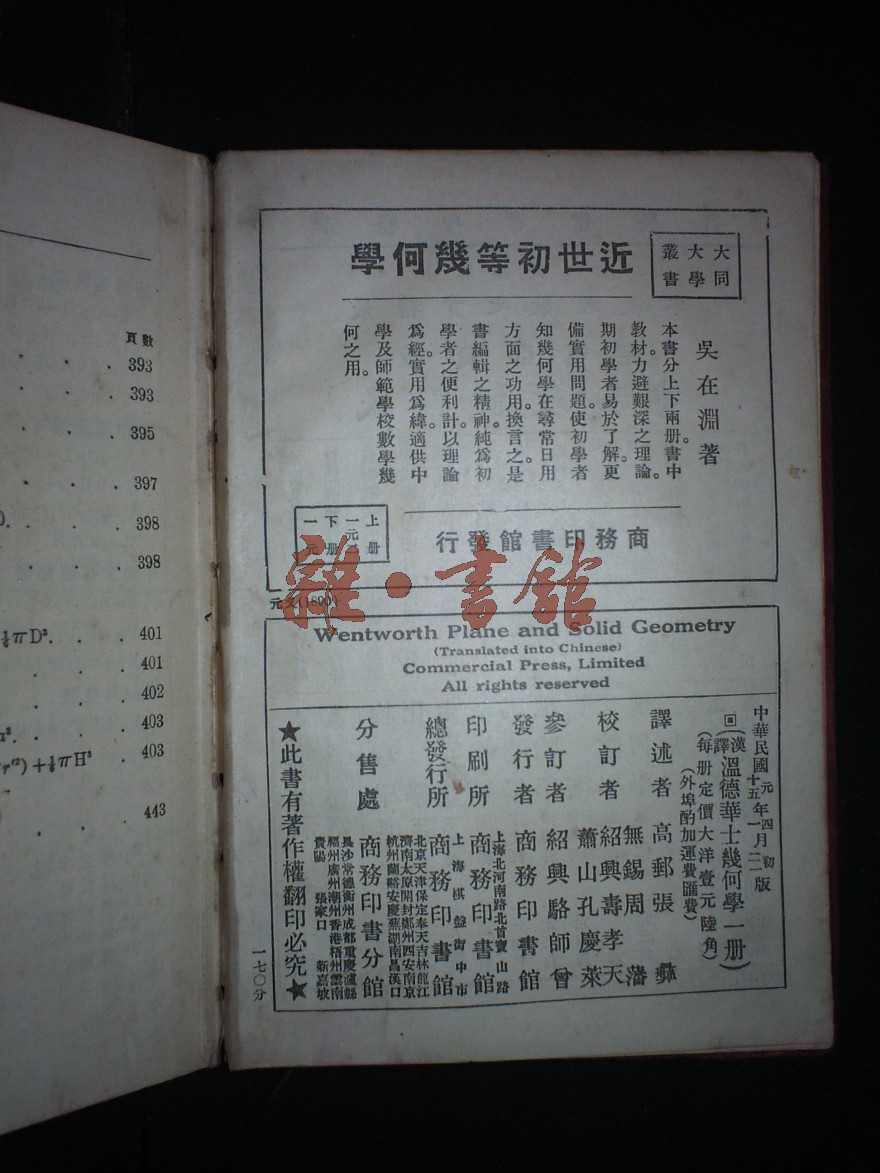 頁數
393
393
395
397
398
398
401
401
402
403
403
443
大同
大學
叢書
近世初等幾何學
吳在淵著
本書分上下兩册。書中
教材。力避艱深之理論。
期初學者易於了解。更
備實用問題。使初學者
知幾何學在尋常日用
方面之功用。換言之。是
書編輯之精神。純爲初
學者之便利計。以理論
爲經。實用爲緯。適供中
學及師範學校數學幾
何之用。
商務印書館發行
上册
下册
一元
雜·書館
Wentworth Plane and Solid Geometry
(Translated into Chinese)
Commercial Press, Limited
All rights reserved
中華民國
元年四月初版
十五年一月二一版
(漢譯)溫德華士幾何學一册)
(每册定價大洋壹元陸角)
(外埠酌加運費匯費)
譯述者 高郵張彝
校訂者 無錫周藩
紹興壽孝天
蕭山孔慶萊
參訂者 紹興駱師曾
發行者 商務印書館
印刷所 上海北河南路北首寶山路
商務印書館
總發行所 上海棋盤街中市
商務印書館
分售處 北京天津保定奉天吉林龍江
濟南太原開封鄭州西安南京
杭州蘭谿安慶蕪湖南昌漢口
商務印書分館
長沙常德衡州成都重慶瀘縣
福州廣州潮州香港梧州雲南
貴陽 張家口 新嘉坡
★此書有著作權翻印必究★
一七〇分